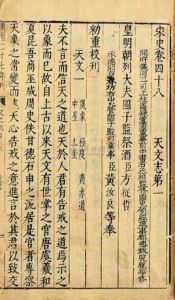 宋史卷四十八 天文志第一
開府儀同三司上柱國錄軍國重事前中書右丞相監修國史領經筵事都總裁
皇明朝列大夫國子監祭酒臣方從哲
司業事臣黃汝良等奉
勅重校刊
天文一 儀象 極度 黃赤道
中星 土圭
夫不言而信天之道也天於人君有告戒之道焉示之
以象而已故自上古以來天文有世掌之官唐虞羲和
夏昆吾商巫咸周史佚甘德石申之流居是官者專察
天象之常變而述天心告戒之意進言於其君以致交
二十七年刊